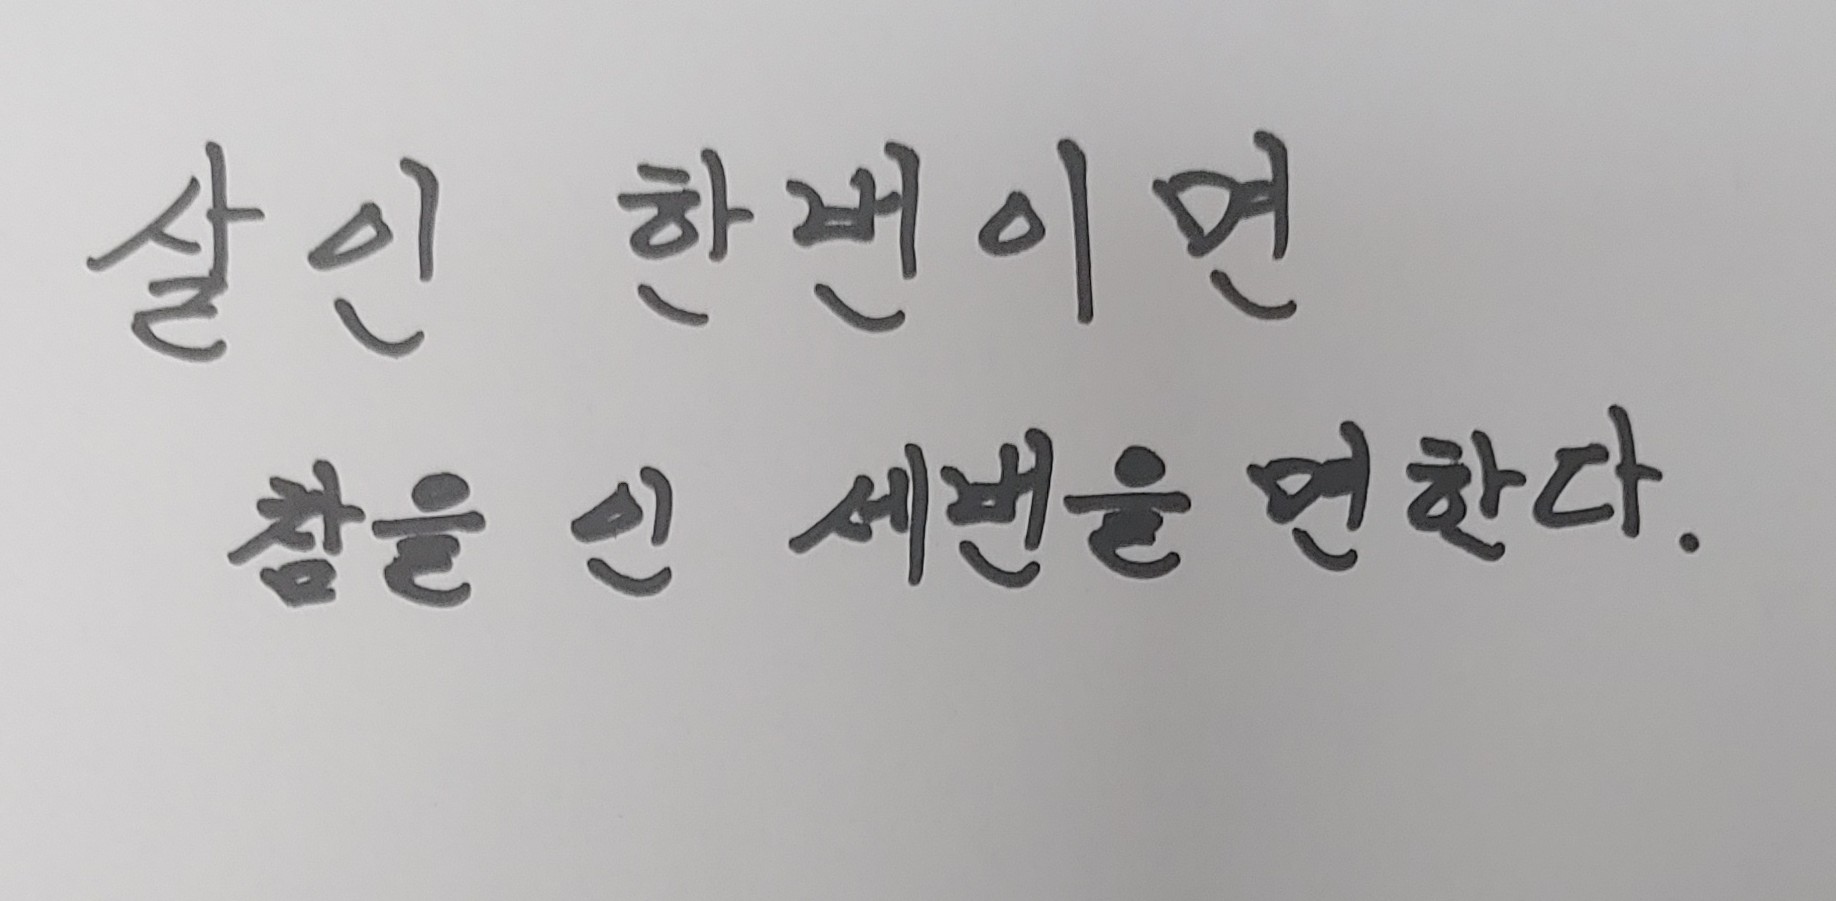 살인 한번이면
참을 인 세번을 면한다.